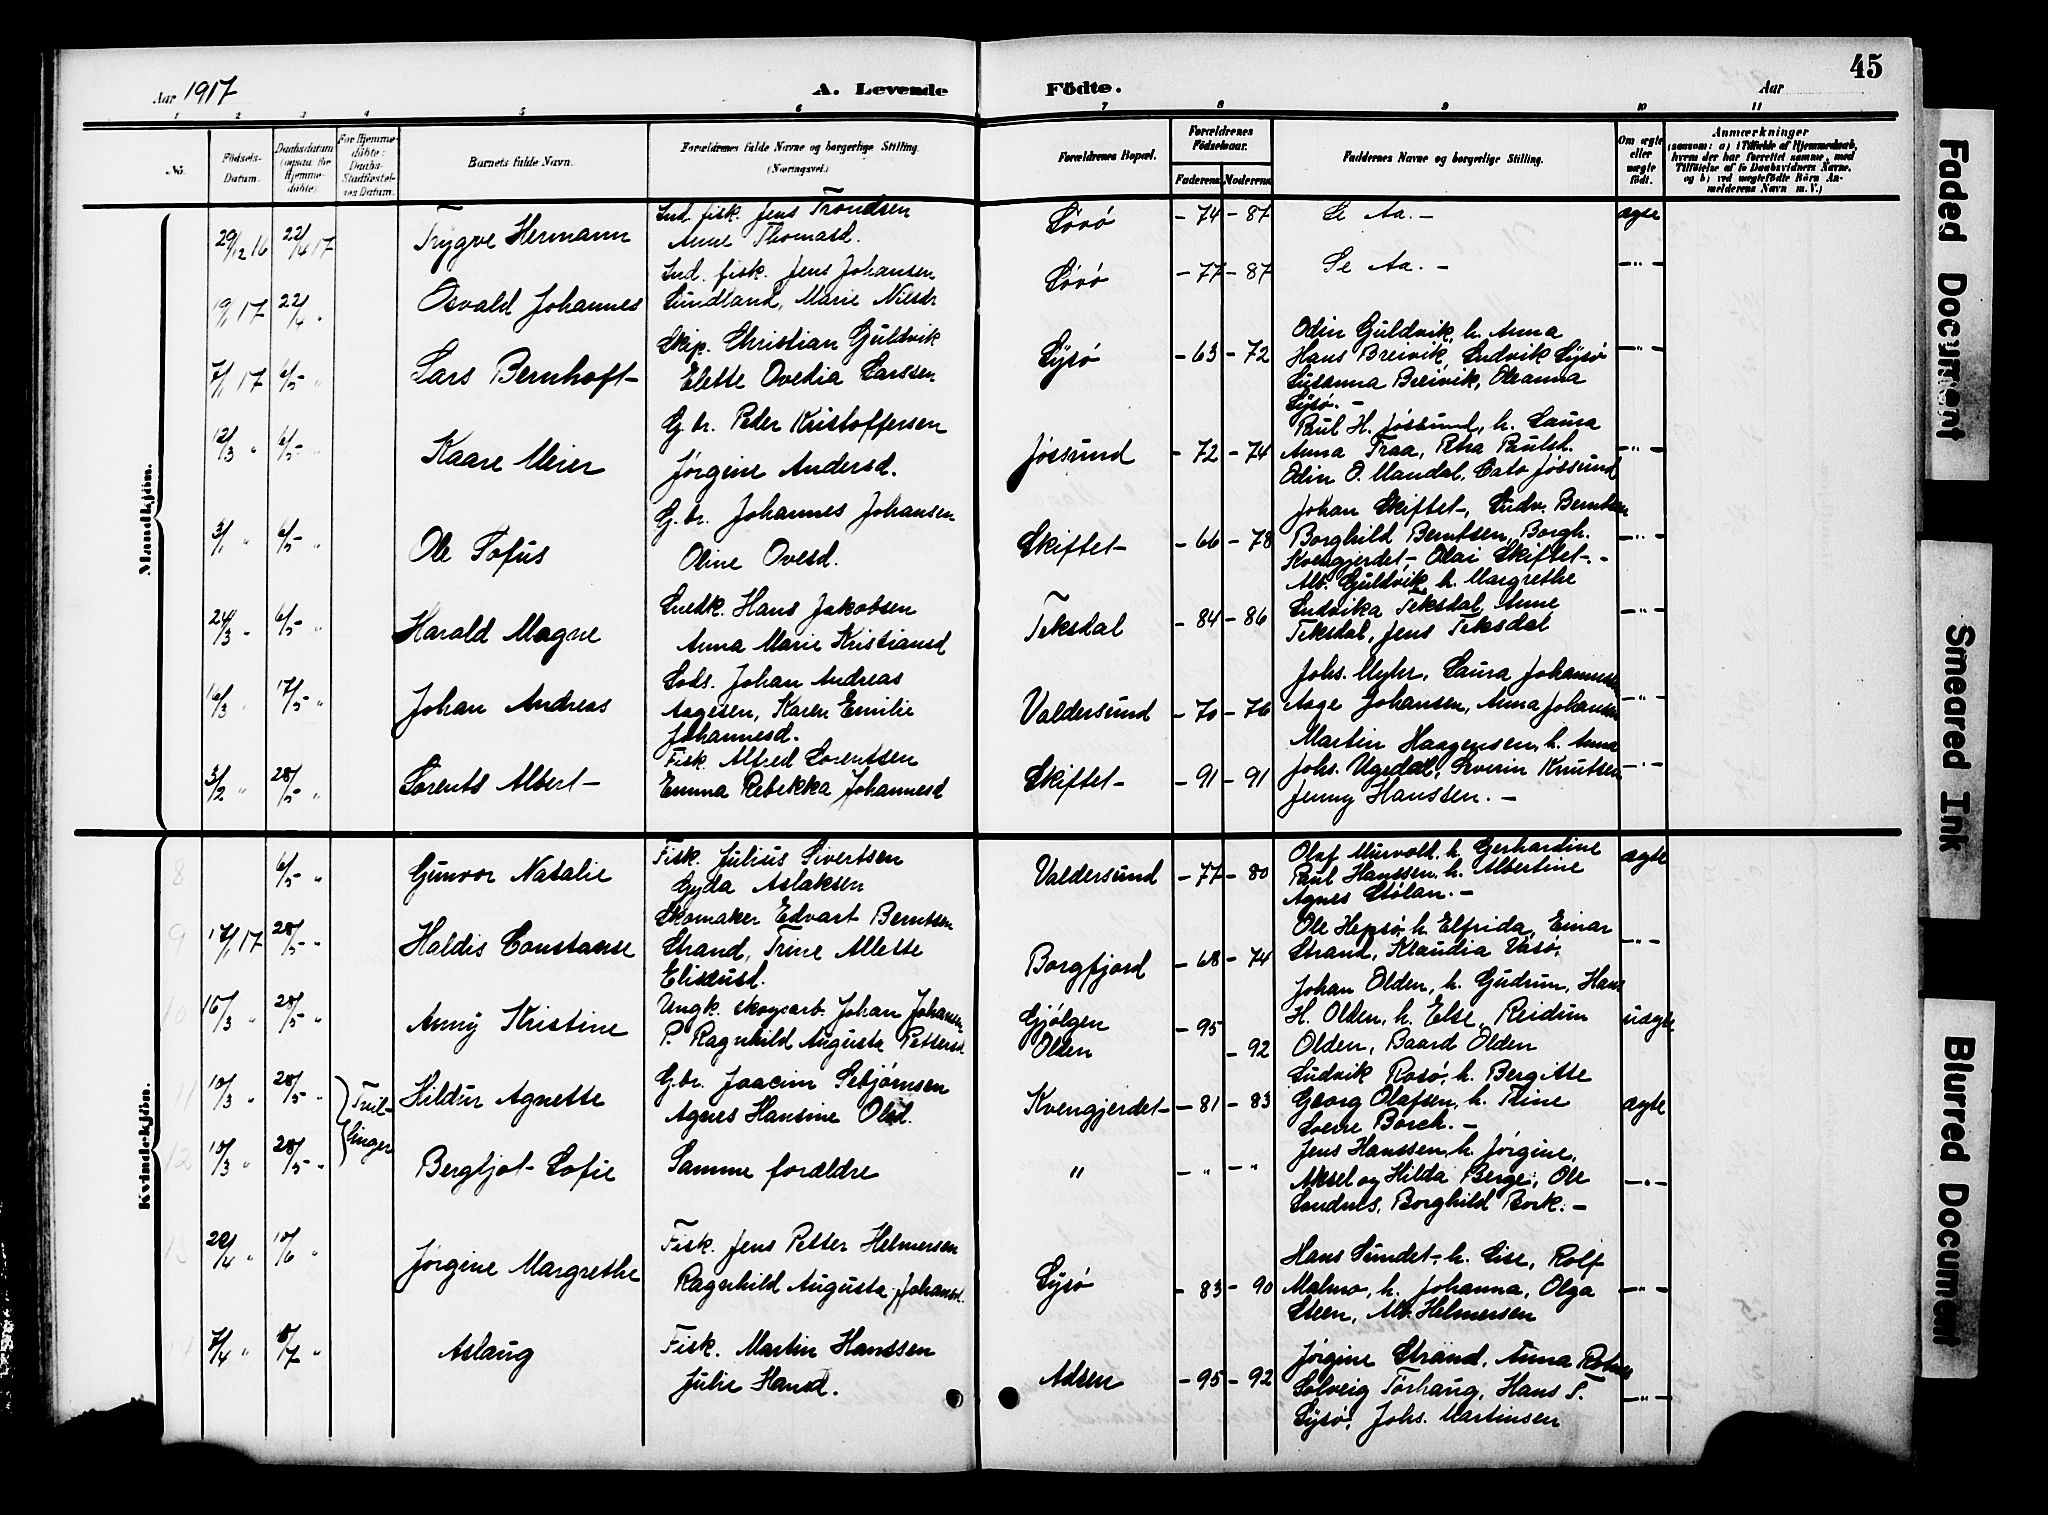 45
Aar 1917
A. Levende Födte.
Aar
1 2 3 4 5 6 7 8 9 10 11
No.
Födsels-Datum.
Daabsdatum (ogsaa for Hjemmedøbte).
For Hjemmedøbte: Daabs-Stadfæstelses Datum.
Barnets fulde Navn.
Forældrenes fulde Navne og borgerlige Stilling. (Næringsvei.)
Forældrenes Bopæl.
Forældrenes Födselsaar.
Faderens Moderens
Faddernes Navne og borgerlige Stilling.
Om ægte eller uægte født.
Anmærkninger
(saasom: a) i Tilfælde af Hjemmedaab, hvem der har forrettet samme, med Tilføielse af to Daabsvidners Navne, og b) ved uægtefødte Börn Anmelderens Navn m. V.)
Mandkjön.
29/12 16 22/4 17 Trygve Hermann
Ind. fisk. Jens Trondsen
Anne Thomasd.
Lörö - 74 - 87 Se Aa. - ægte
19/1 17 22/4 " Osvald Johannes
Ind. fisk. Jens Johansen
Sundland, Marie Nilsdr
Lörö - 77 - 87 Se Aa. - -"-
7/1 17 6/5 " Lars Bernhoft
Skip. Christian Guldvik
Elette Ovedia Larssen
Lysö - 63 - 72
Odin Guldvik, h. Anna
Hans Breivik, Ludvik Lysö -"-
Susanna Breivik, Oleanna
Lysö. -
12/3 " 6/5 " Kaare Meier
G. br. Peder Kristoffersen
Jörgine Andersd.
Jössund - 72 - 74
Paul H. Jössund, h. Laura
Anna Traa, Petra Paulsd. -"-
Odin O. Mandal, Cato Jössund
3/1 " 6/5 " Ole Tofus
G. br. Johannes Johansen
Oline Ovesd.
Skiftet - 66 - 78
Johan Skiftet, Ludv. Berntsen
Borghild Berntsen, Borgh. -"-
Kvengjerdet, Olai Skiftet. -
24/3 " 6/5 " Harald Magne
Snedk. Hans Jakobsen
Anna Marie Kristiansd
Teksdal - 84 - 86
Alb. Guldvik h. Margrethe
Ludvika Teksdal, Anne -"-
Teksdal, Jens Teksdal
16/3 " 17/5 " Johan Andreas
Lods. Johan Andreas
Aagesen, Karen Emilie
Johannesd.
Valdersund - 70 - 76
Johs. Myhr, Laura Johannessen
Aage Johansen, Anna Johansen -"-
3/2 " 28/5 " Lorents Albert
Fisk. Alfred Lorentsen
Emma Rebekka Johannesd
Skiftet - 91 - 91
Martin Haagensen, h. Anna
Johs. Ugedal, Severin Knutsen -"-
Jenny Hanssen. -
Kvindekjön.
8 6/5 " Gunvor Natalie
Fisk. Julius Sivertsen
Gyda Aslaksen
Valdersund - 77 - 80
Olaf Murvold, h. Gerhardine ægte
Paul Hanssen, h. Albertine
Agnes Stölan. -
9 17/1 17 28/5 " Haldis Constanse
Skomaker Edvart Berntsen
Strand, Trine Allette
Eliseusd.
Borgfjord - 68 - 74
Ole Hepsö, h. Elfrida, Einar
Strand, Klaudia Vasö. -"-
10 15/3 " 28/5 " Anny Kristine
Ungk. skogsarb. Johan Johansen
P. Ragnhild Augusta Pettersd
Gjölgen - 95
Olden - 92
Johan Olden, h. Gudrun, Hans
H. Olden, h. Else, Reidun uægte
Olden, Baard Olden
11 10/3 " 28/5 " Tvil- Hildur Agnette
G. br. Joacim Sebjörnsen
Agnes Hansine Olsd.
Kvengjerdet - 81 - 83
Ludvik Rosö, h. Bergitte
Georg Olafsen, h. Trine ægte
Sverre Borch. -
12 10/3 " 28/5 " linger Bergljot Sofie
Samme forældre
" - " - "
Jens Hanssen, h. Jörgine,
Aksel og Hilda Berge, Ole -"-
Sandnes, Borghild Bork. -
13 22/4 " 10/6 " Jörgine Margrethe
Fisk. Jens Petter Helmersen
Ragnhild Augusta Johansd.
Lysö - 83 - 90
Hans Sundet, h. Lise, Rolf
Malmo, h. Johanna, Olga -"-
Steen, Alb. Helmersen
14 7/4 " 8/7 " Aslaug
Fisk. Martin Hanssen
Julie Hansd.
Adsen - 95 - 92
Jörgine Strand, Anna
Solveig Torhaug, Hans T. -"-
Lysö, Johs. Martinsen
Faded Document
Smeared Ink
Blurred Document